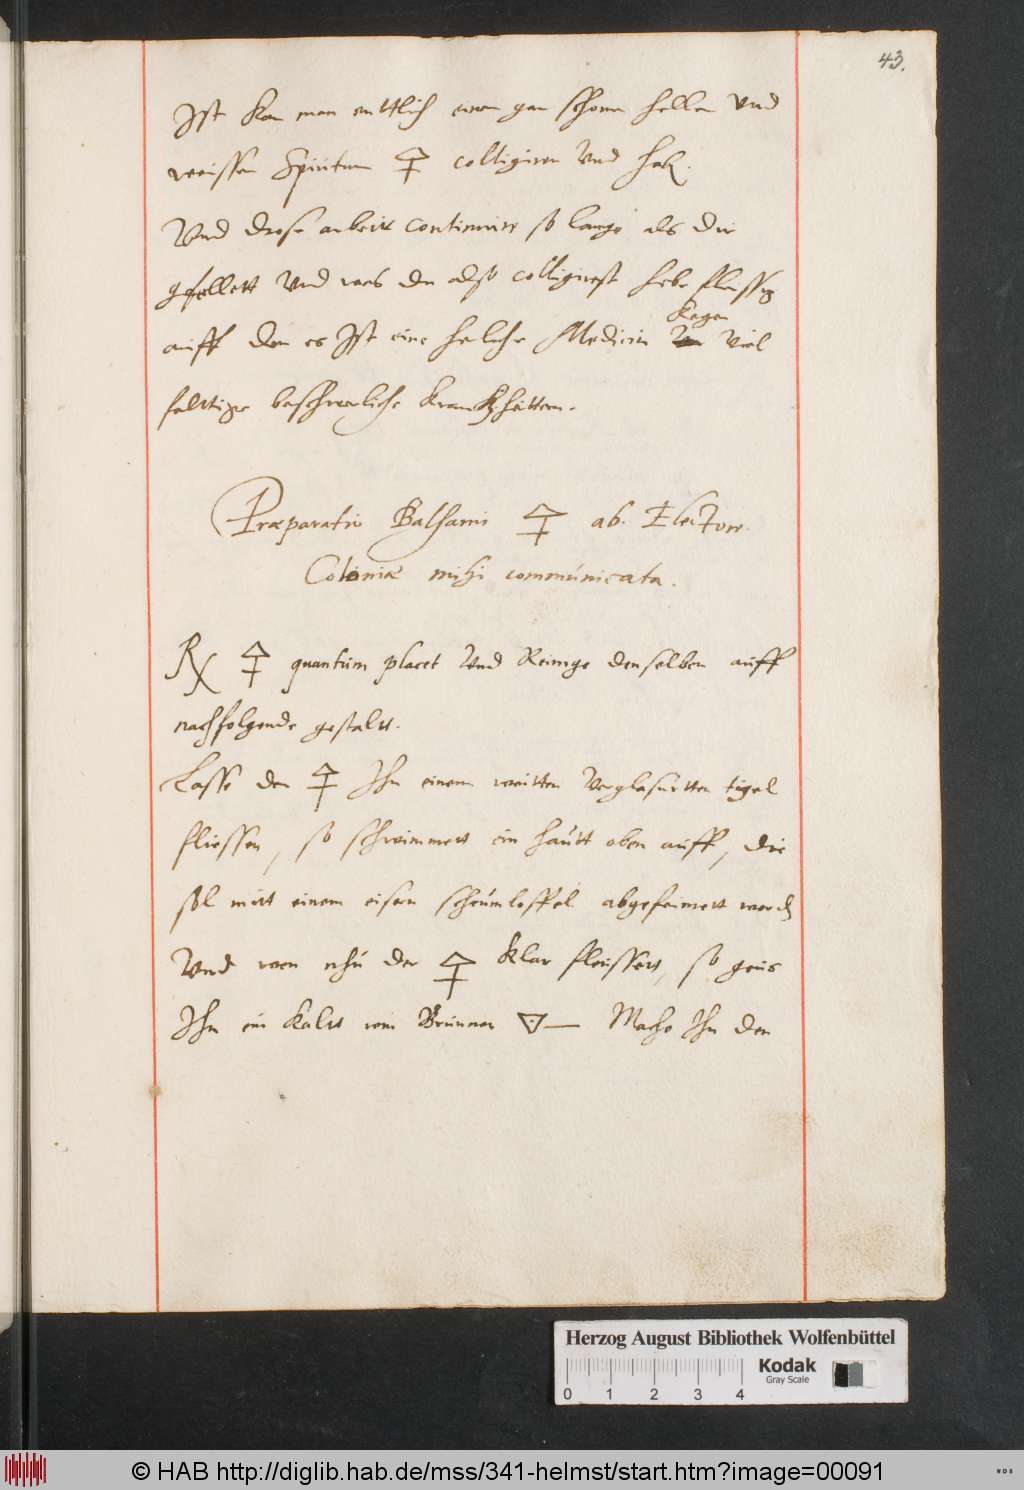 43.
Ist kan man enttlich einen gar schonen hellen Vnd
weissen Spiritum 🜍 colligiren Vnd hab.
Vnd diese arbeit continuire so lange als dir
gfellett Vnd was du also colligirest hebe fleissig
Kegen
auff den es Ist eine solche Medicin viel
faltige beschwerliche Kranckheitten.
Præparatio Balsami 🜍 ab. Electore
Coloniæ mihi communicata.
℞ 🜍 quantum placet Vnd Reinige denselben auff
nachfolgende gestaltt.
Lasse den 🜍 Ihn einem weitten Verglasurtten tigel
fliessen, so schwimmett ein hautt oben auff, die
sol mitt einem eisern scheumloffel abgefeimett werden
Vnd wen nhu der 🜍 klar fleussett, so geus
Ihn ein kaltt rein Brunnen 🜄 Mache Ihn den
Herzog August Bibliothek Wolfenbüttel
Kodak
Gray Scale
0 1 2 3 4
© HAB http://diglib.hab.de/mss/341-helmst/start.htm?image=00091